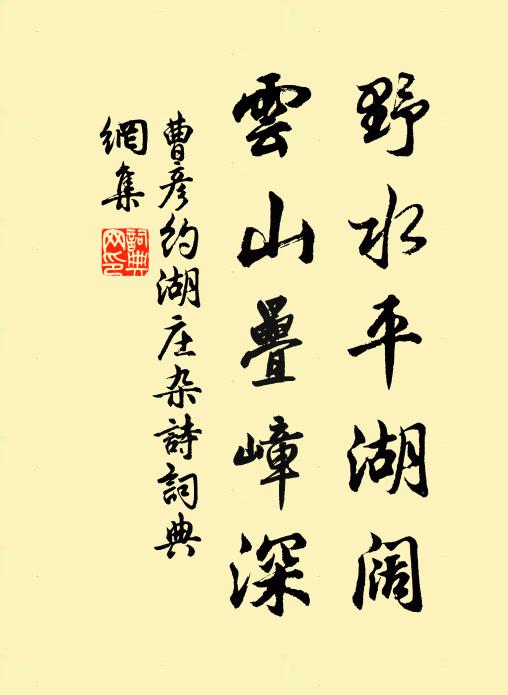 野水平湖阔
雲山疊嶂深
曹彥约湖庄杂詩詞典
網集
詞典
网印